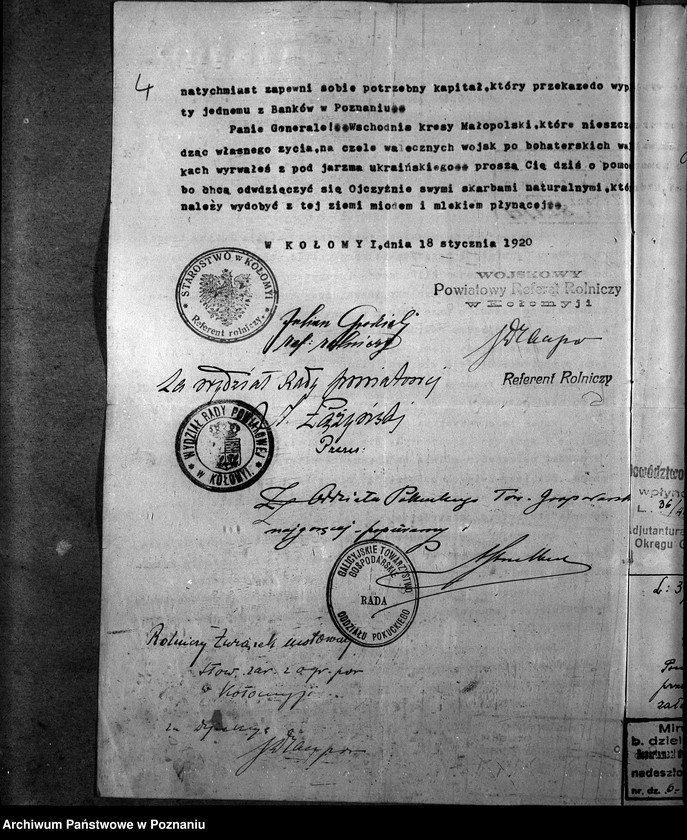 4
natychmiast zapewni sobie potrzebny kapitał,który przekazedo wyp
ty jednemu z Banków w Poznaniu
Panie Generale! Wschodnie kresy Małopolski,które nieszczę
dząc własnego zycia,na czele walecznych wojsk po bohaterskich wa
kach wyrwałeś z pod jarzma ukraińskiego proszą Cię dziś o pomo
bo chcą odwdzięczyć się Ojczyźnie swymi skarbami naturalnymi,któ
należy wydobyć z tej ziemi miodem i mlekiem płynącej
W KOŁOMYI,dnia 18 stycznia 1920
STAROSTWO w KOŁOMYI
Referent rolniczy
WOJSKOWY
Powiatowy Referat Rolniczy
w Kołomyji
Julian
ref: rolniczy
Referent Rolniczy
Za wydział Rady powiatowej
WYDZIAŁ RADY POWIATOWEJ
w KOŁOMYI
Prezes:
Za Oddziała Pokuckiego Tow. Gospodarsk
najgoręcej popieramy
GALICYJSKIE TOWARZYSTWO
GOSPODARSKIE
RADA
ODDZIAŁU POKUCKIEGO
Rolniczy Związek
Stow. zar. z ogr. por
w Kołomyji
za
wpłyn
L. 36/
djutantura
Okręgu G
Min
b. dziel
nadeszło
nr. dz. 6.
Archiwum Państwowe w Poznaniu